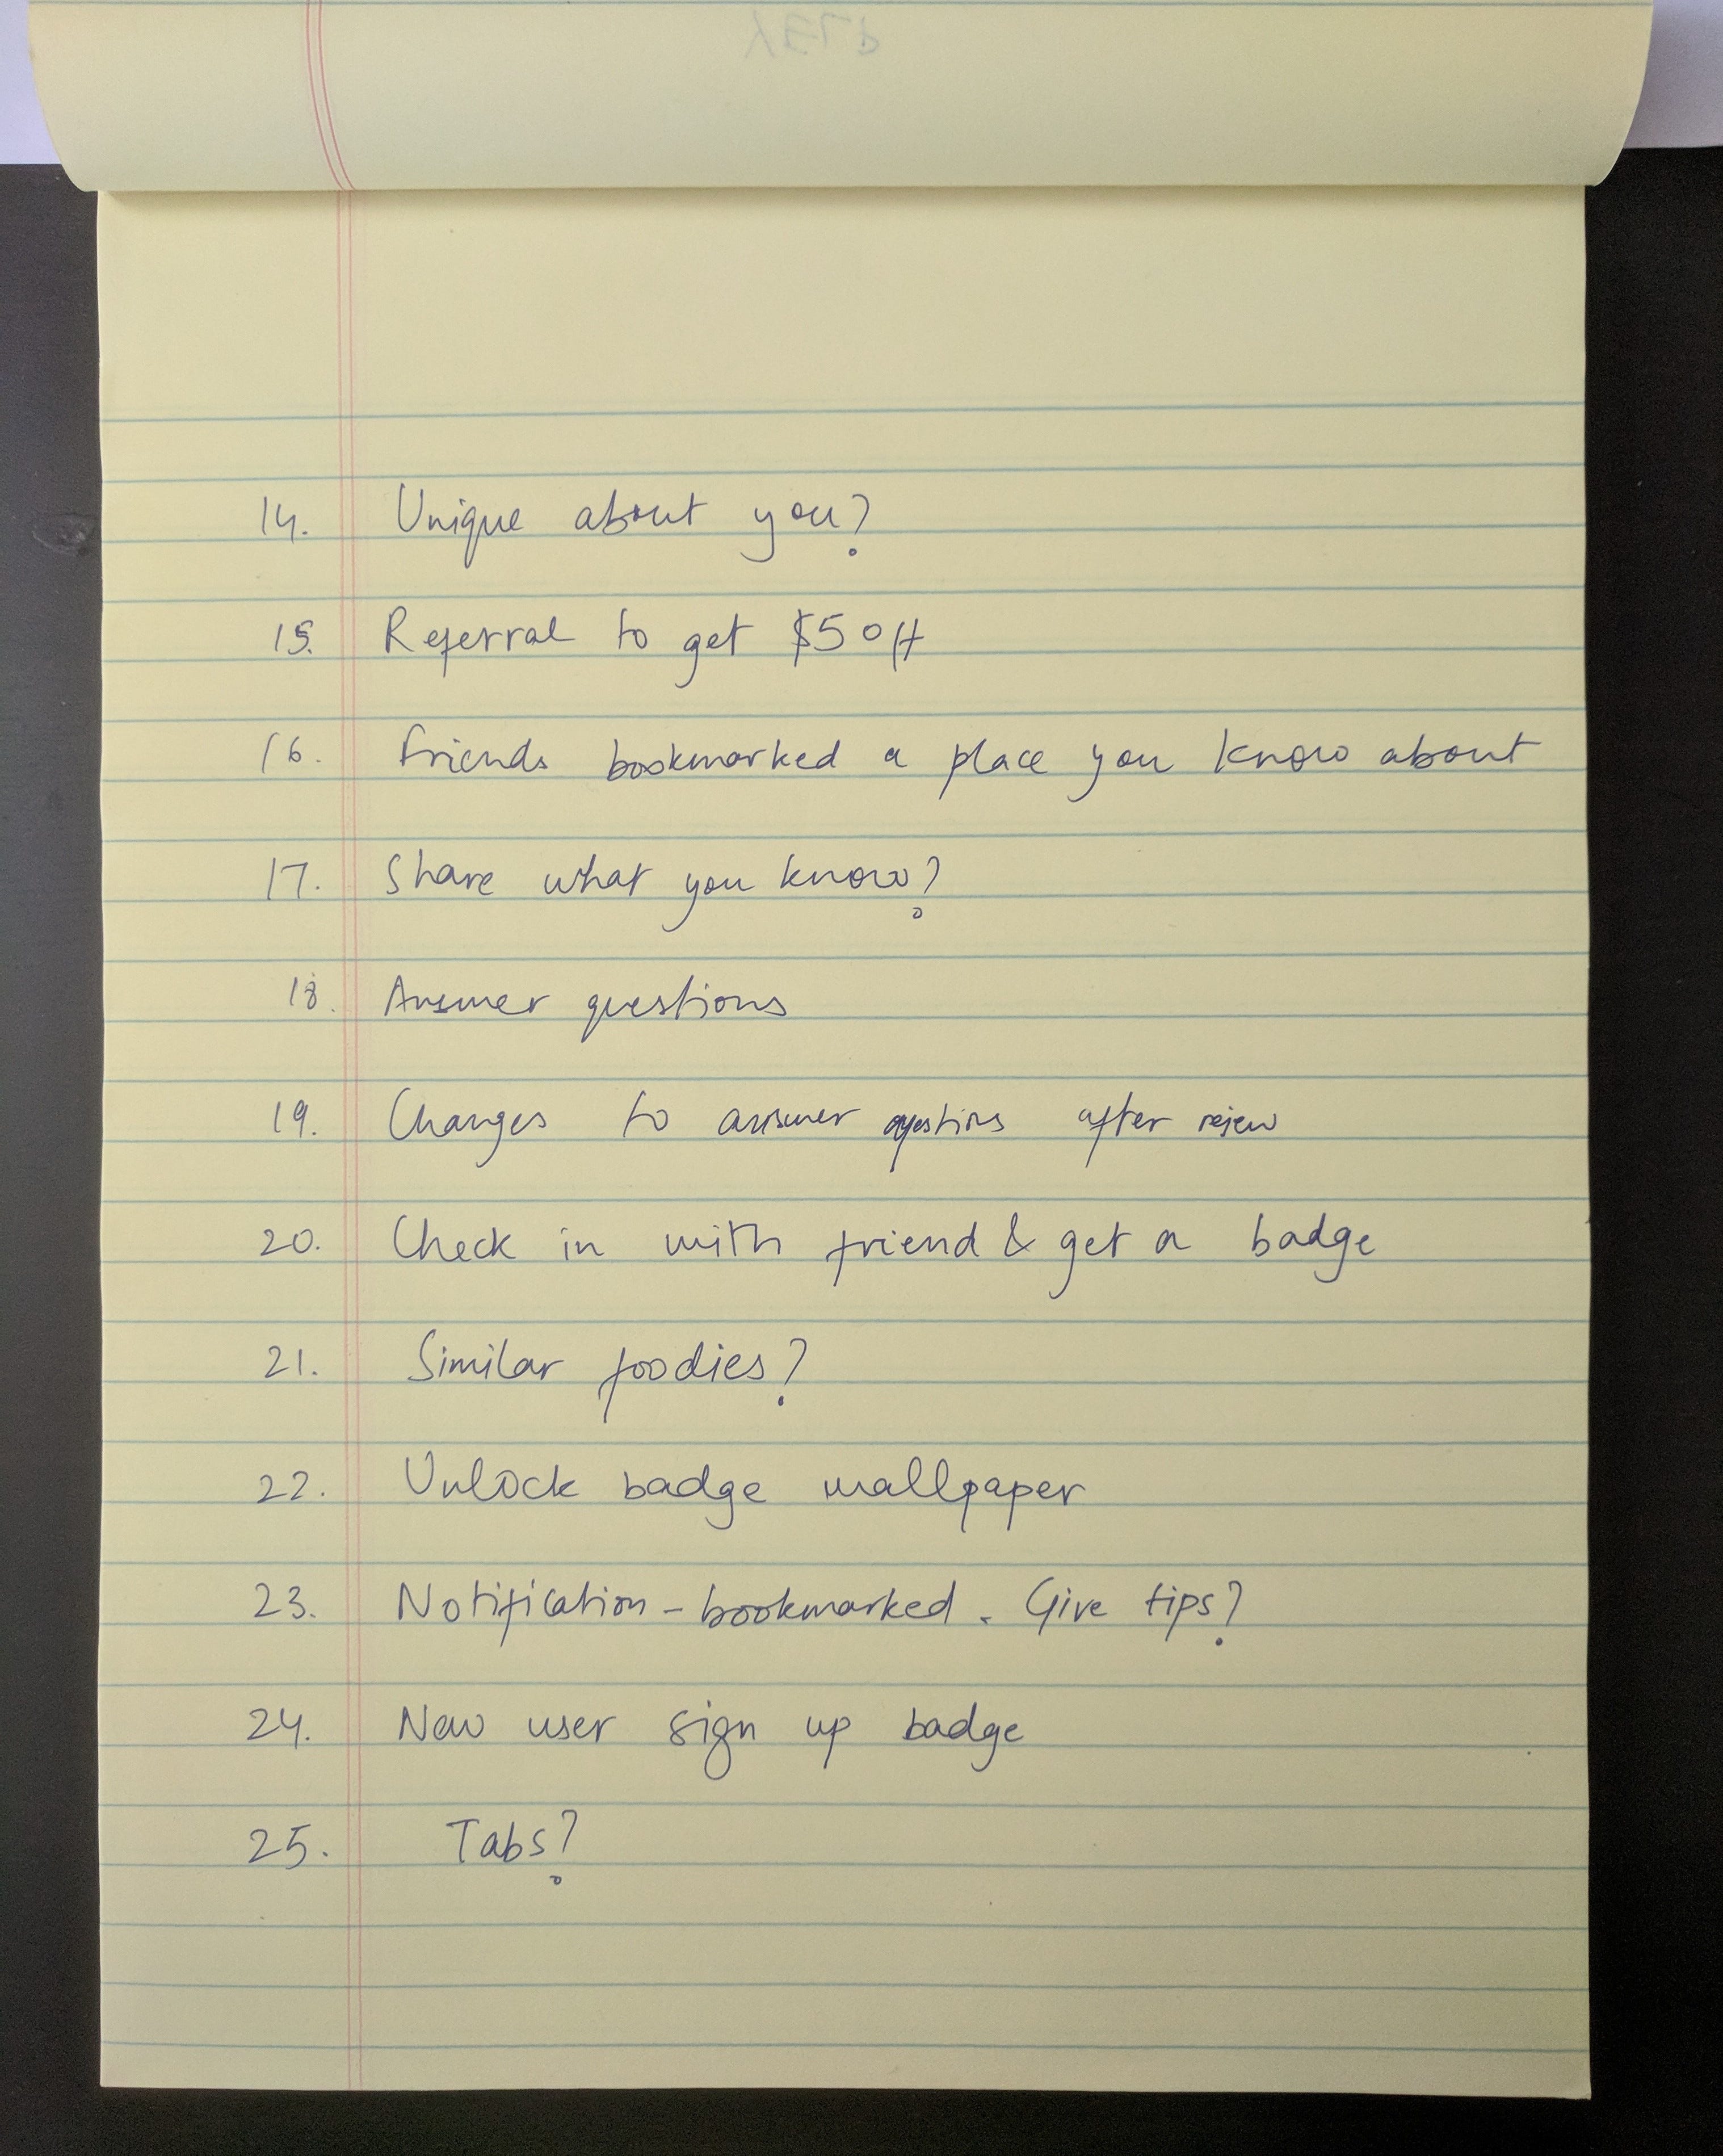 14. Unique about you?
15. Referral to get $5 off
16. friends bookmarked a place you know about
17. Share what you know?
18. Answer questions
19. Changes to answer questions after
20. Check in with friend & get a badge
21. Similar foodies?
22. Unlock badge wallpaper
23. Notification - bookmarked. Give tips?
24. New user sign up badge
25. Tabs?